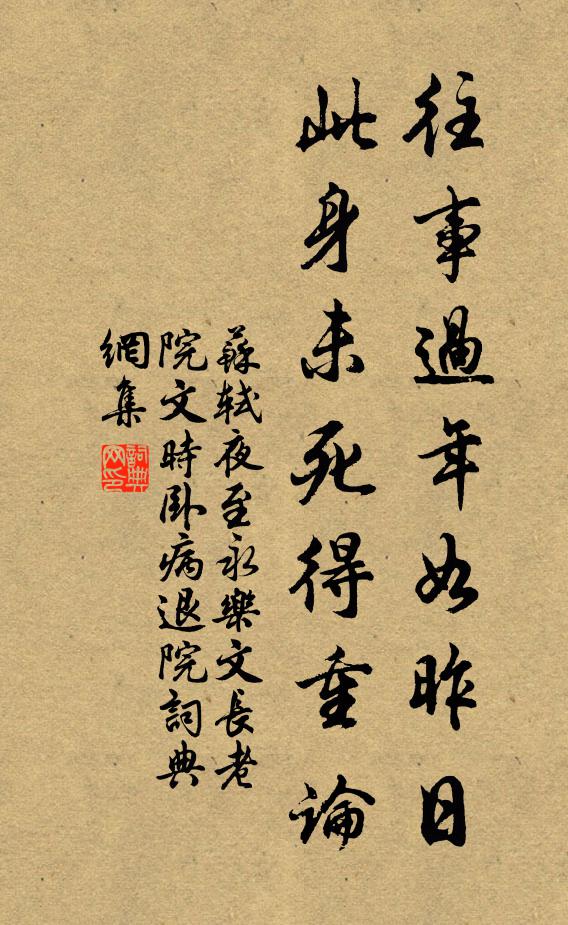 往事過年如昨日
此身未死得重論
蘇軾夜至永樂文長老
院文時臥病退院詞典
網集
詞典網印